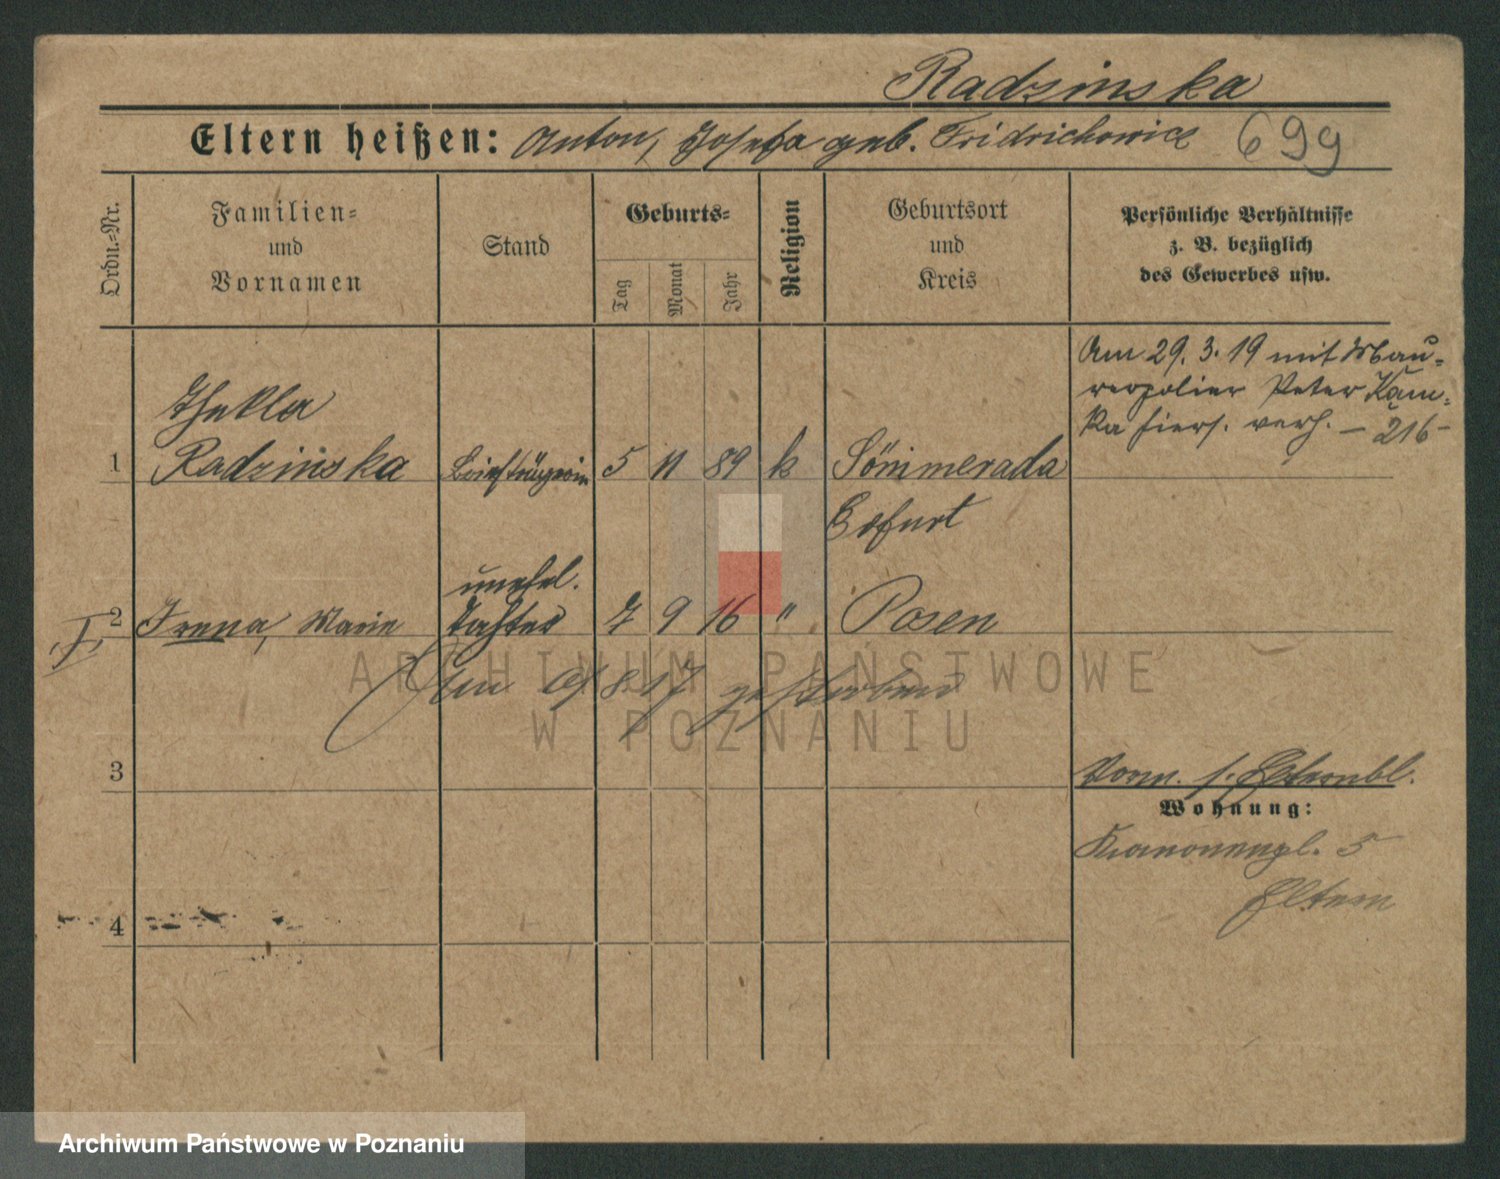 Radzinska
Eltern heißen: Anton, Josefa geb. Fridrichowicz 699
Ordn.-Nr.
Familien-
und
Vornamen
Stand
Geburts-
Tag
Monat
Jahr
Religion
Geburtsort
und
Kreis
Persönliche Verhältnisse
z. B. bezüglich
des Gewerbes usw.
Am 29. 3. 19 mit Mau-
rerpolier Peter Kam-
ka hiers. verh. – 216 –
Thekla
1 Radzinska Briefträgerin 5 11 89 k Sömmerada
Erfurt
unehel.
2 Irena, Marie Tochter 7 9 16 " Posen
Am 8 17 gestorben
3
Vorm. s. Elternbl.
Wohnung:
Kanonenpl. 5
Eltern
4
ARCHIWUM PAŃSTWOWE
W POZNANIU
Archiwum Państwowe w Poznaniu